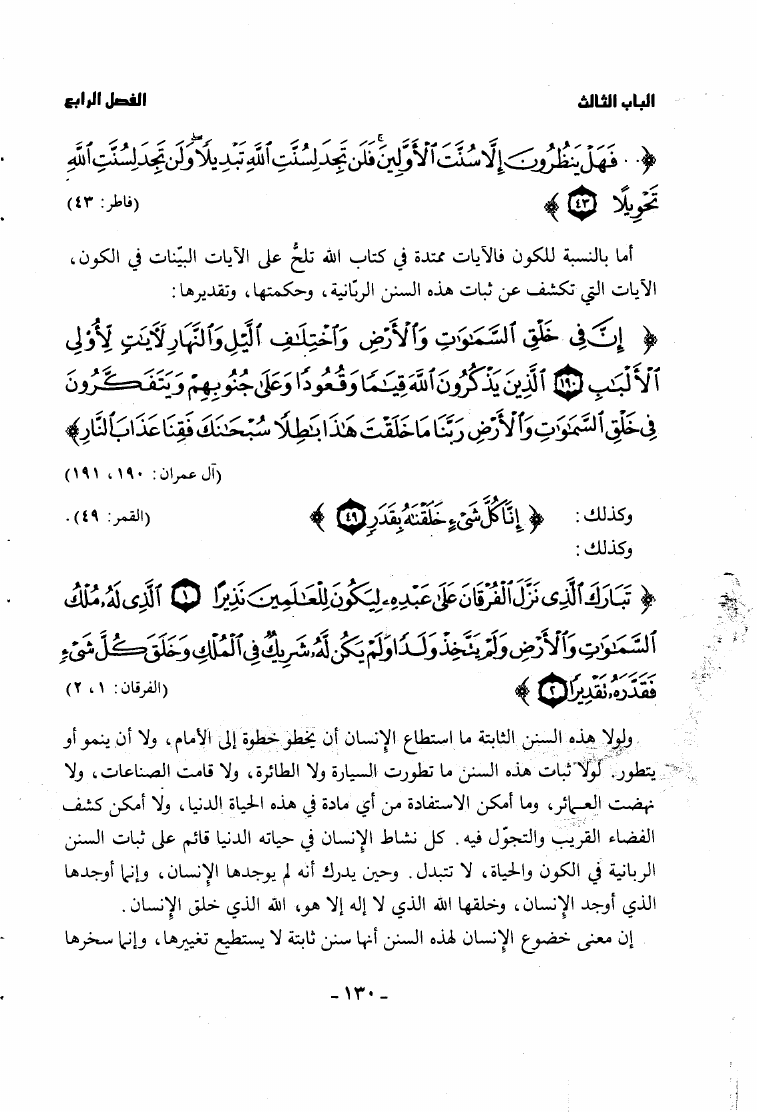 الباب الثالث
الفصل الرابع
﴿ ٠٠ فَهَلْ يَنظُرُونَ إِلَّا سُنَّتَ ٱلْأَوَّلِينَ ۚ فَلَن تَجِدَ لِسُنَّتِ ٱللَّهِ تَبْدِيلًا ۖ وَلَن تَجِدَ لِسُنَّتِ ٱللَّهِ
تَحْوِيلًا ٤٣ ﴾ (فاطر: ٤٣)
أما بالنسبة للكون فالآيات ممتدة في كتاب الله تلحُّ على الآيات البيّنات في الكون،
الآيات التي تكشف عن ثبات هذه السنن الربّانية، وحكمتها، وتقديرها:
﴿ إِنَّ فِى خَلْقِ ٱلسَّمَٰوَٰتِ وَٱلْأَرْضِ وَٱخْتِلَٰفِ ٱلَّيْلِ وَٱلنَّهَارِ لَءَايَٰتٍ لِّأُو۟لِى
ٱلْأَلْبَٰبِ ١٩٠ ٱلَّذِينَ يَذْكُرُونَ ٱللَّهَ قِيَٰمًا وَقُعُودًا وَعَلَىٰ جُنُوبِهِمْ وَيَتَفَكَّرُونَ
فِى خَلْقِ ٱلسَّمَٰوَٰتِ وَٱلْأَرْضِ رَبَّنَا مَا خَلَقْتَ هَٰذَا بَٰطِلًا سُبْحَٰنَكَ فَقِنَا عَذَابَ ٱلنَّارِ﴾
(آل عمران: ١٩٠، ١٩١)
وكذلك: ﴿ إِنَّا كُلَّ شَىْءٍ خَلَقْنَٰهُ بِقَدَرٍ ٤٩ ﴾ (القمر: ٤٩).
وكذلك:
﴿ تَبَارَكَ ٱلَّذِى نَزَّلَ ٱلْفُرْقَانَ عَلَىٰ عَبْدِهِۦ لِيَكُونَ لِلْعَٰلَمِينَ نَذِيرًا ١ ٱلَّذِى لَهُۥ مُلْكُ
ٱلسَّمَٰوَٰتِ وَٱلْأَرْضِ وَلَمْ يَتَّخِذْ وَلَدًا وَلَمْ يَكُن لَّهُۥ شَرِيكٌ فِى ٱلْمُلْكِ وَخَلَقَ كُلَّ شَىْءٍ
فَقَدَّرَهُۥ تَقْدِيرًا ٢ ﴾ (الفرقان: ١، ٢)
ولولا هذه السنن الثابتة ما استطاع الإنسان أن يخطو خطوة إلى الأمام، ولا أن ينمو أو
يتطور. لولا ثبات هذه السنن ما تطورت السيارة ولا الطائرة، ولا قامت الصناعات، ولا
نهضت العمائر، وما أمكن الاستفادة من أي مادة في هذه الحياة الدنيا، ولا أمكن كشف
الفضاء القريب والتجوّل فيه. كل نشاط الإنسان في حياته الدنيا قائم على ثبات السنن
الربانية في الكون والحياة، لا تتبدل. وحين يدرك أنه لم يوجدها الإنسان، وإنما أوجدها
الذي أوجد الإنسان، وخلقها الله الذي لا إله إلا هو، الله الذي خلق الإنسان.
إن معنى خضوع الإنسان لهذه السنن أنها سنن ثابتة لا يستطيع تغييرها، وإنما سخرها
- ١٣٠ -